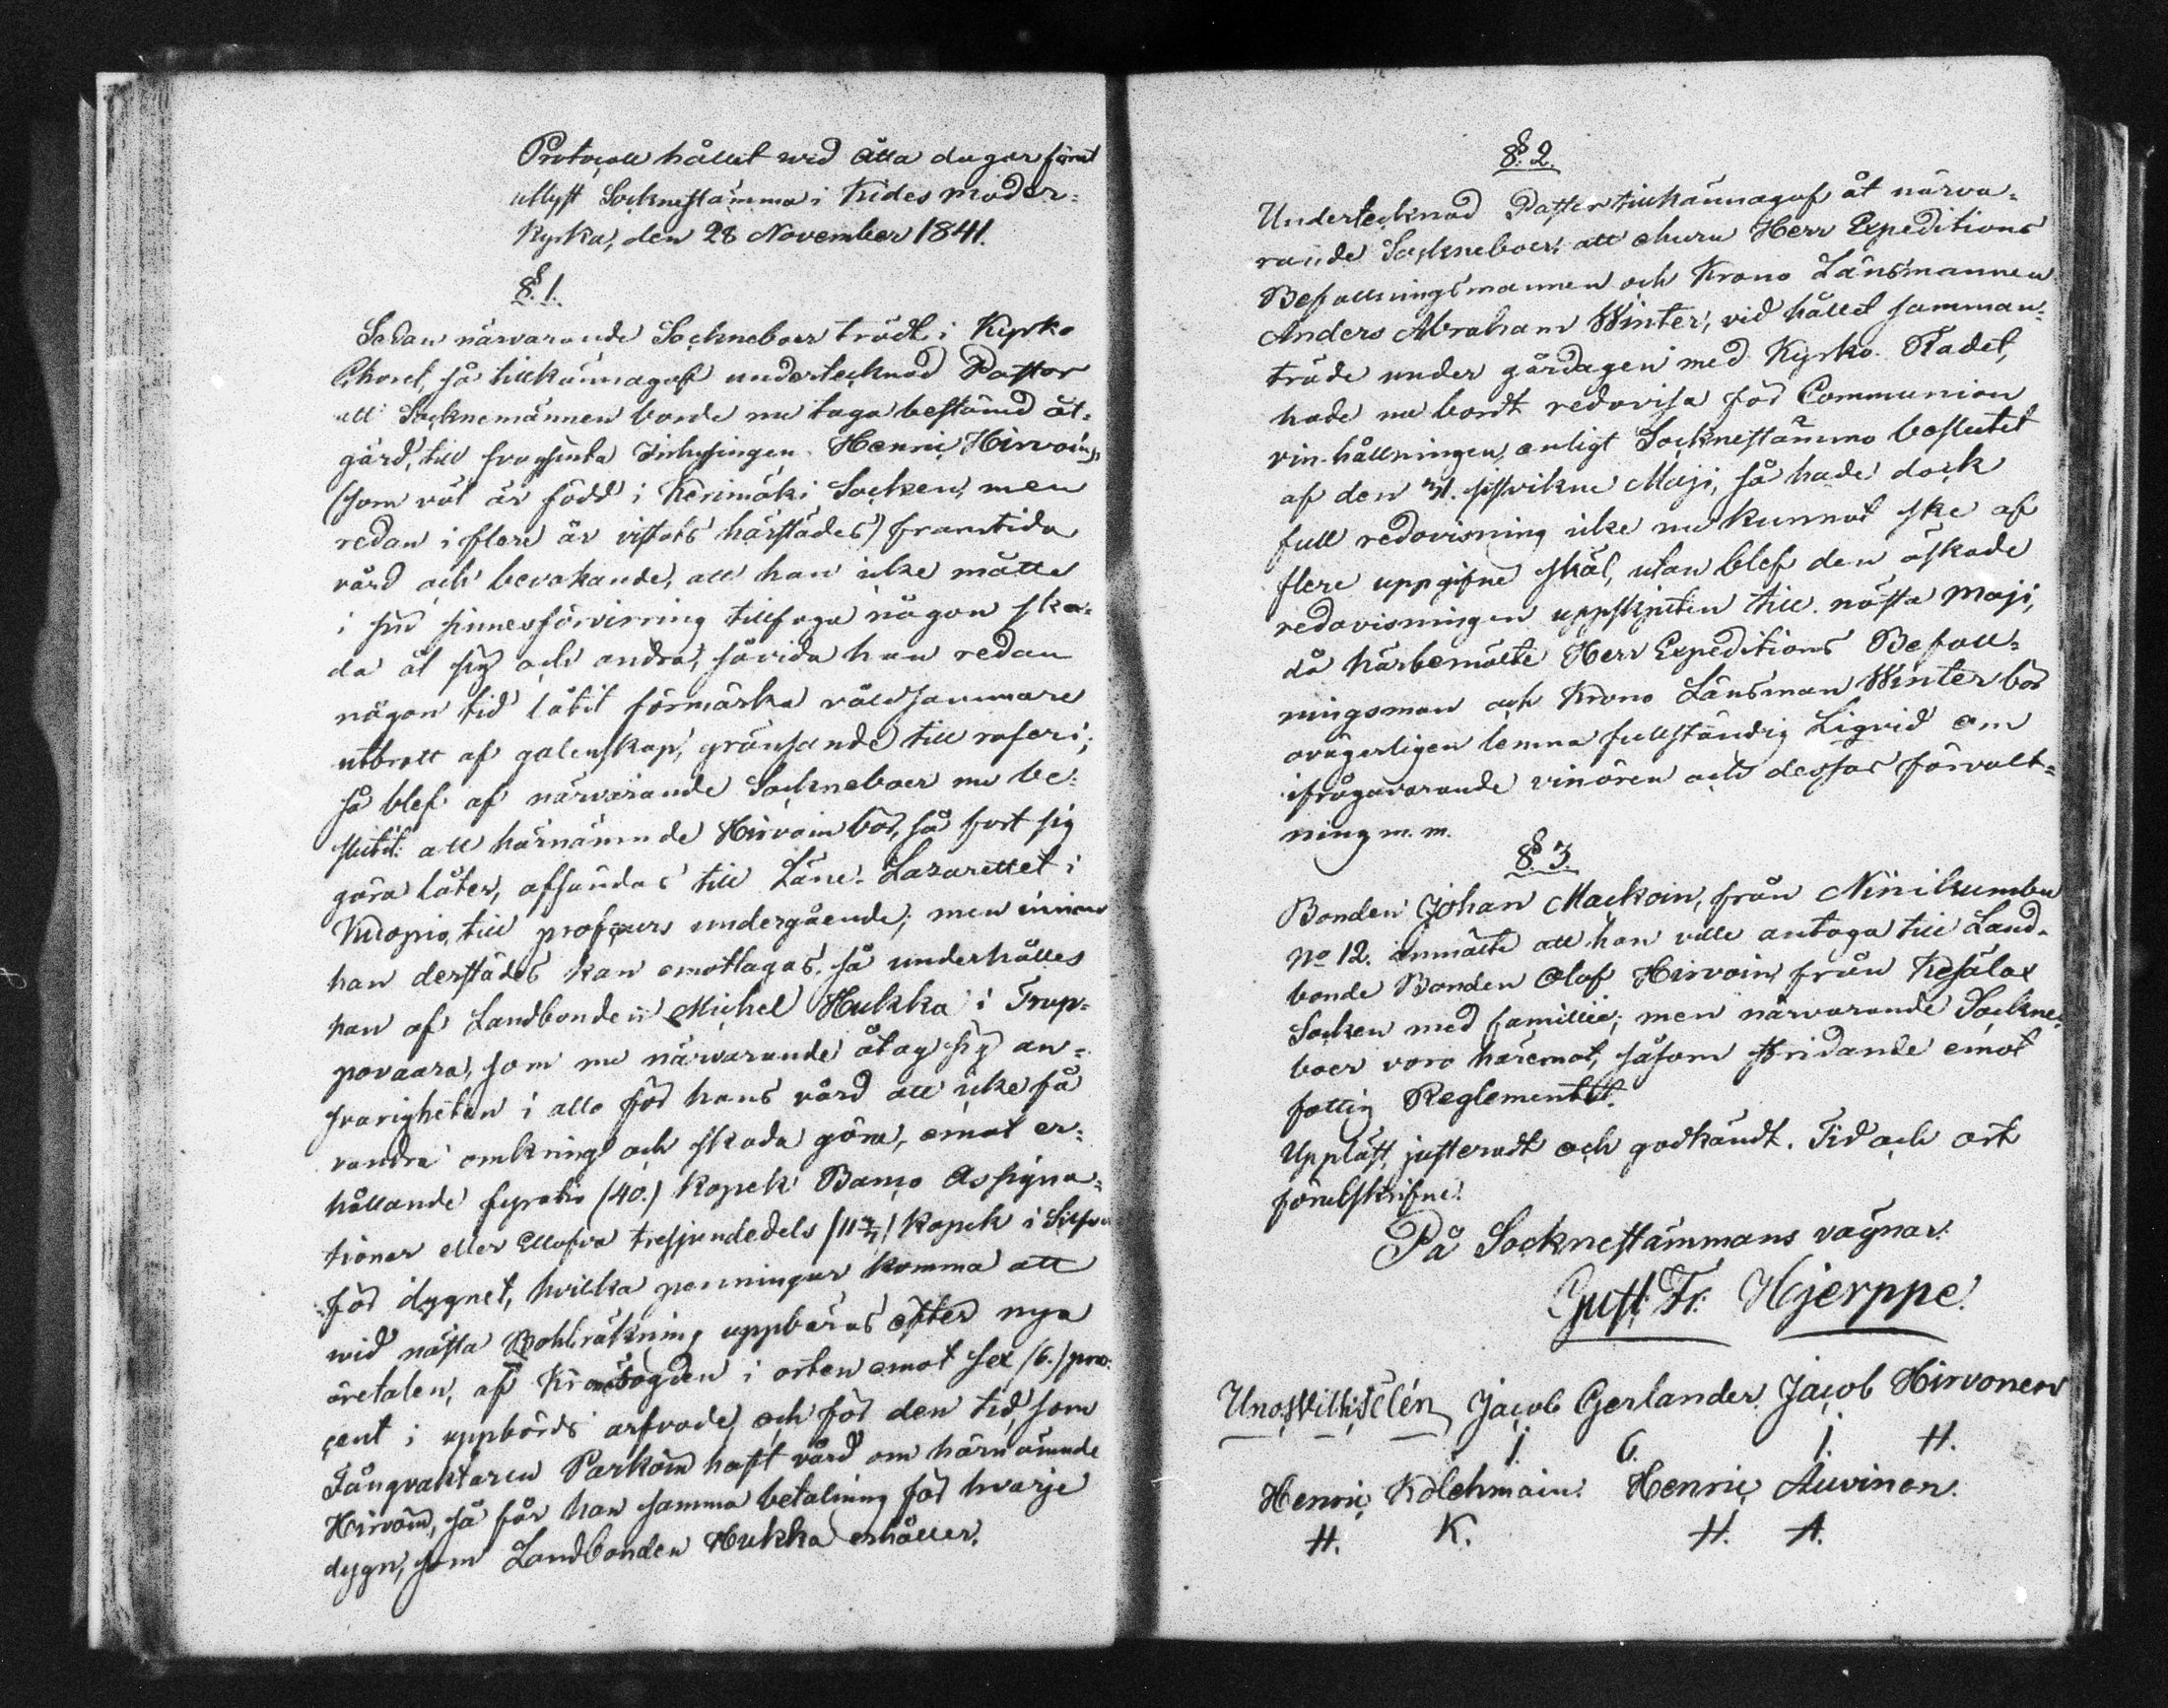 Protocoll hållit wid åtta dagar förut
utlyst Socknestämma i Kides moder-
kyrka, den 28 November 1841.
§. 1.
Sedan närvarande Sockneboer trädt i Kyrko
Choret, så tillkännagaf undertecknad Pastor
att Socknemännen borde nu taga bestämd åt-
gärd, till frånsinta Inhysingen Henric Hirvoins,
(som väl är född i Kerimäki Socken, men
redan i flere år vistats härstädes) framtida
vård och bevakande, att han icke måtte
i sin sinnesförvirring tillfoga någon ska-
da åt sig och andra, såvida han redan
någon tid låtit förmärka våldsammare
utbrott af galenskap, gränsande till raseri;
så blef af närvarande Sockneboer nu be-
slutit: att härnämnde Hirvoin bör, så fort sig
göra låter, afsändas till Läns-Lazarettet i
Kuopio, till profcurs undergående; men innan
han derstädes kan emottagas, så underhålles
han af Landbonden Michel Hukka i Trup-
povaara, som nu närvarande åtog sig an-
svarigheten i allo för hans vård att icke få
vandra omkring och skada göra, emot er-
hållande fyratio (40.) Kopek Banco Assigna-
tioner eller Ellofva tresjundedels (11 3/7) Kopek i Silfver
för dygnet, hvilka penningar komma att
wid nästa Bohlräkning uppbäras efter nya
öretalen, af Kronofogden i orten emot sex (6.) pro-
cent i uppbörds arfvode, och för den tid, som
Fångvaktaren Parkoin haft vård om härnämnde
Hirvoin, så får han samma betalning för hvarje
dygn, som Landbonden Hukka erhåller.
§. 2.
Undertecknad Pastor tillkännagaf åt närva-
rande Sockneboer, att ehuru Herr Expeditions
Befallningsmannen och Krono Länsmannen
Anders Abraham Winter, vid hållit samman-
träde under gårdagen med Kyrko-Rådet,
hade nu bordt redovisa för Communion
vin-hållningen, enligt Socknestämmo beslutet
af den 31. sistvikne Maji, så hade dock
full redovisning icke nu kunnat ske af
flere uppgifne skäl, utan blef den äskade
redovisningen uppskjuten till nästa Maji,
då härbemälte Herr Expeditions Befall-
ningsman och Krono Länsman Winter bör
ovägerligen lemna fullständig Liqvid om
ifrågavarande vinören och dessas förvalt-
ning m. m.
§ 3.
Bonden Johan Mackoin, från Niinikumbu
No 12. anmälte att han ville antaga till Land-
bonde Bonden Olof Hirvoin från Kesälax
Socken med familie; men närvarande Sockne-
boer voro häremot, såsom stridande emot
fattig Reglementet.
Uppläst, justeradt och godkändt. Tid och ort
förutskrifne.
På Socknestämmans vägnar:
Gust. Fr. Hjerppe.
Jacob Gerlander. Jacob Hirvonen
I. G. I. H.
Henric Kolehmain. Henric Auvinen.
H. K. H. A.